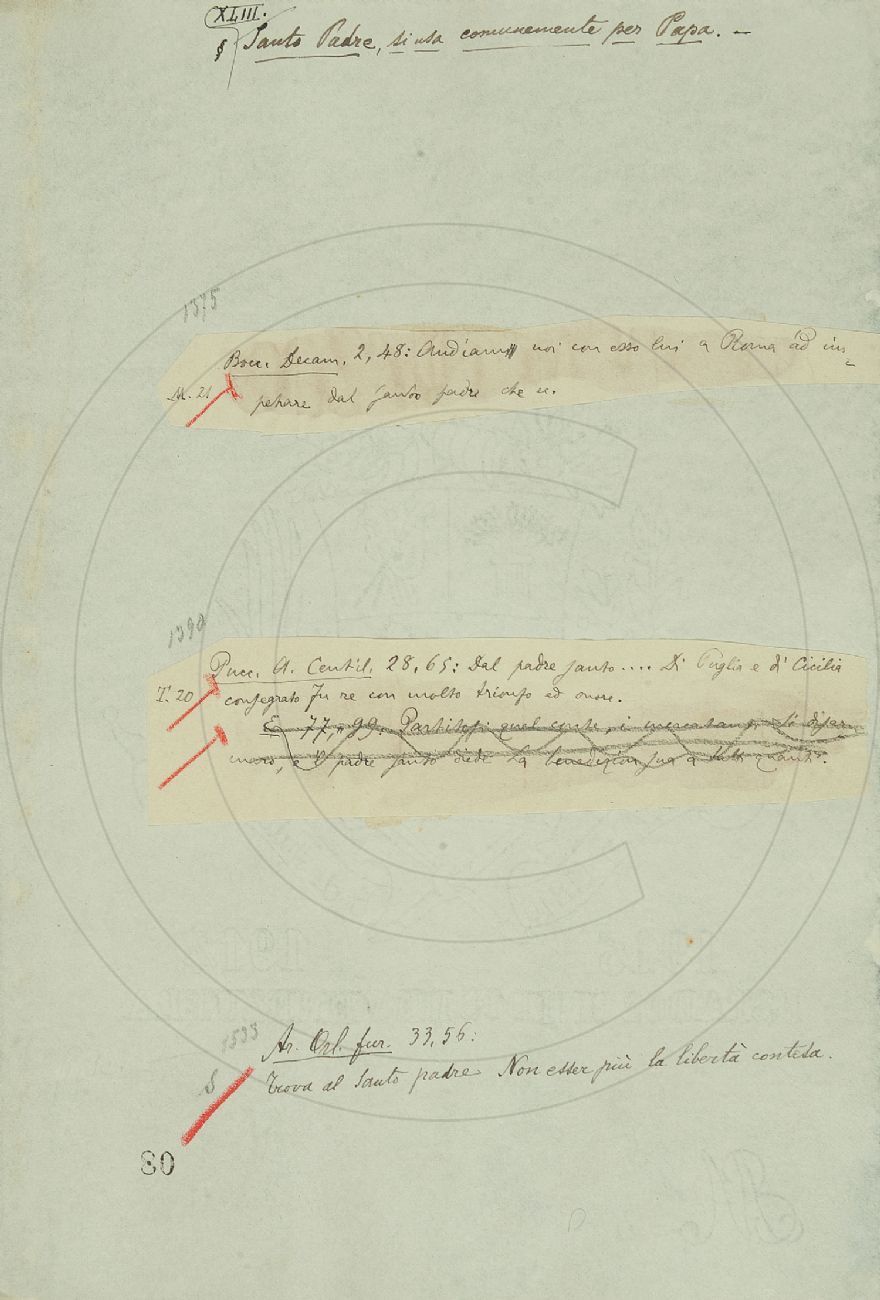 XLIII.
§ Santo Padre, si usa comunemente per Papa. —
1375
Bocc. Decam. 2, 48: Andiamo noi con esso lui a Roma ad im-
M. 21
petrare dal santo padre che ec.
1390
Pucc. A. Centil. 28, 65: Dal padre santo.... Di Puglia e di Cicilia
T. 20
consegrato fu re con molto trionfo ed onore.
E 77, 99. Partitosi quel conte, i mercatanti
e 'l padre santo diede la benedizion sua a tutti quanti.
1533
Ar. Orl. fur. 33, 56:
S
Trova al Santo padre Non esser più la libertà contesa.
80